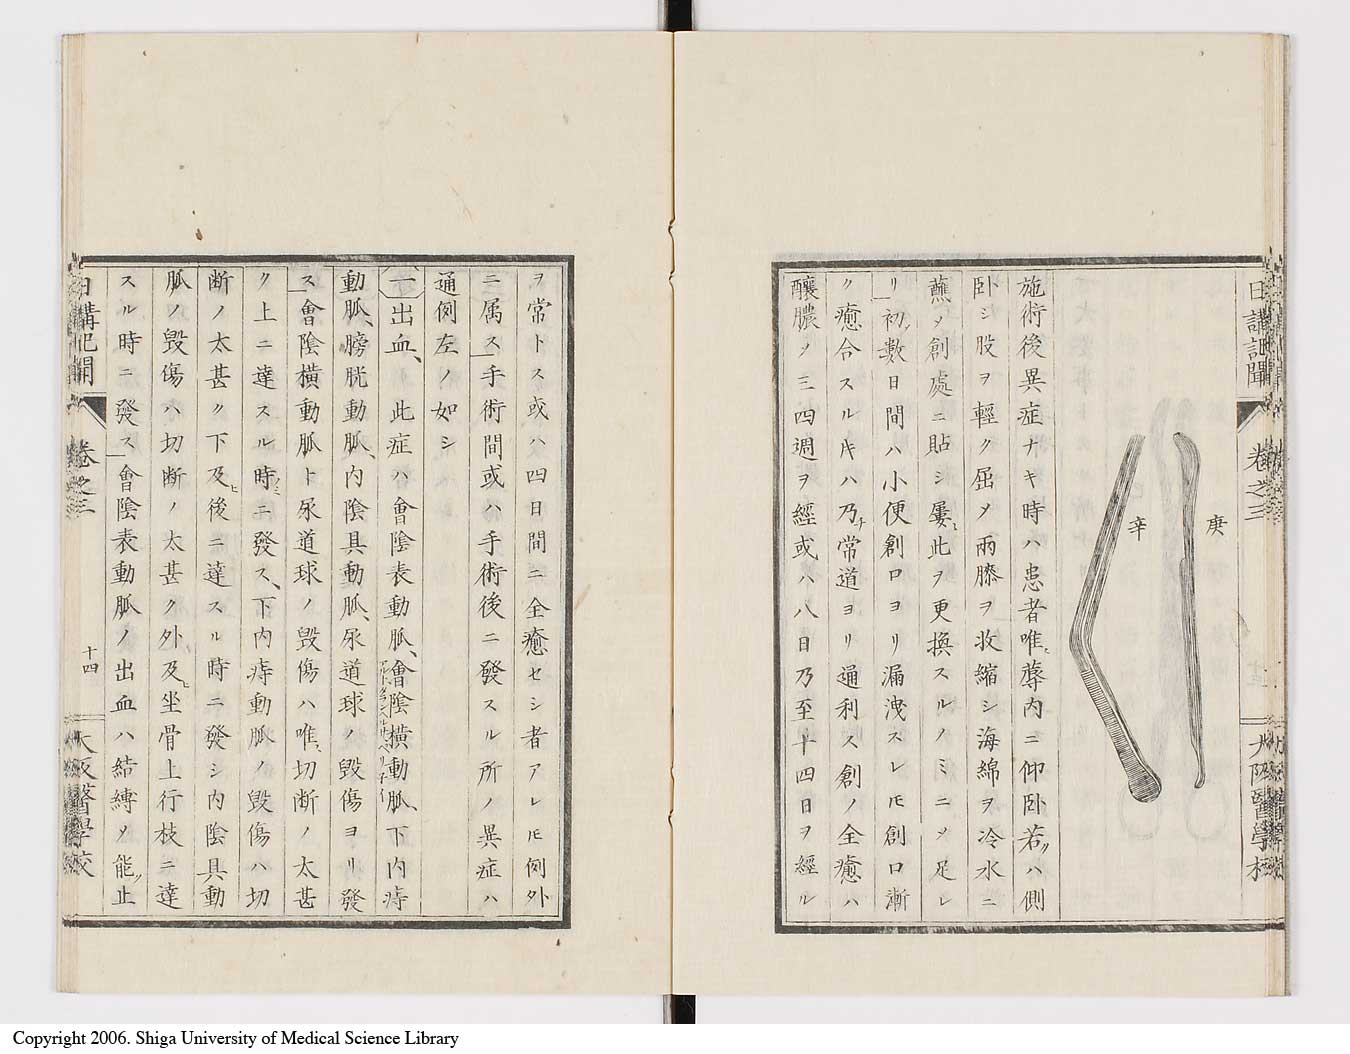 日講記聞
卷之三
大阪醫學校
庚
辛
施術後異症ナキ時ハ患者唯蓐内ニ仰卧若クハ側
卧シ股ヲ輕ク屈メ兩膝ヲ收縮シ海綿ヲ冷水ニ
蘸メ創處ニ貼シ屢此ヲ更換スルノミニメ足レ
リ初メ數日間ハ小便創口ヨリ漏洩スレ𪜈創口漸
ク癒合スル𪜈ハ乃チ常道ヨリ通利ス創ノ全癒ハ
釀膿メ三四週ヲ經或ハ八日乃至十四日ヲ經ル
ヲ常トス或ハ四日間ニ全癒セシ者アレ𪜈例外
ニ属ス手術間或ハ手術後ニ發スル所ノ異症ハ
通例左ノ如シ
一出血、此症ハ會陰表動脈、會陰横動脈、下内痔
動脈、膀胱動脈、内陰具動脈、尿道球ノ毀傷ヨリ發
ス會陰横動脈ト尿道球ノ毀傷ハ唯切断ノ太甚
ク上ニ達スル時ノミニ發ス、下内痔動脈ノ毀傷ハ切
断ノ太甚ク下及ヒ後ニ達スル時ニ發シ内陰具動
脈ノ毀傷ハ切断ノ太甚ク外及ヒ坐骨上行枝ニ達
スル時ニ發ス會陰表動脈ノ出血ハ結縛メ能ク止
日講記聞
卷之三
十四
大阪醫學校
Copyright 2006. Shiga University of Medical Science Library